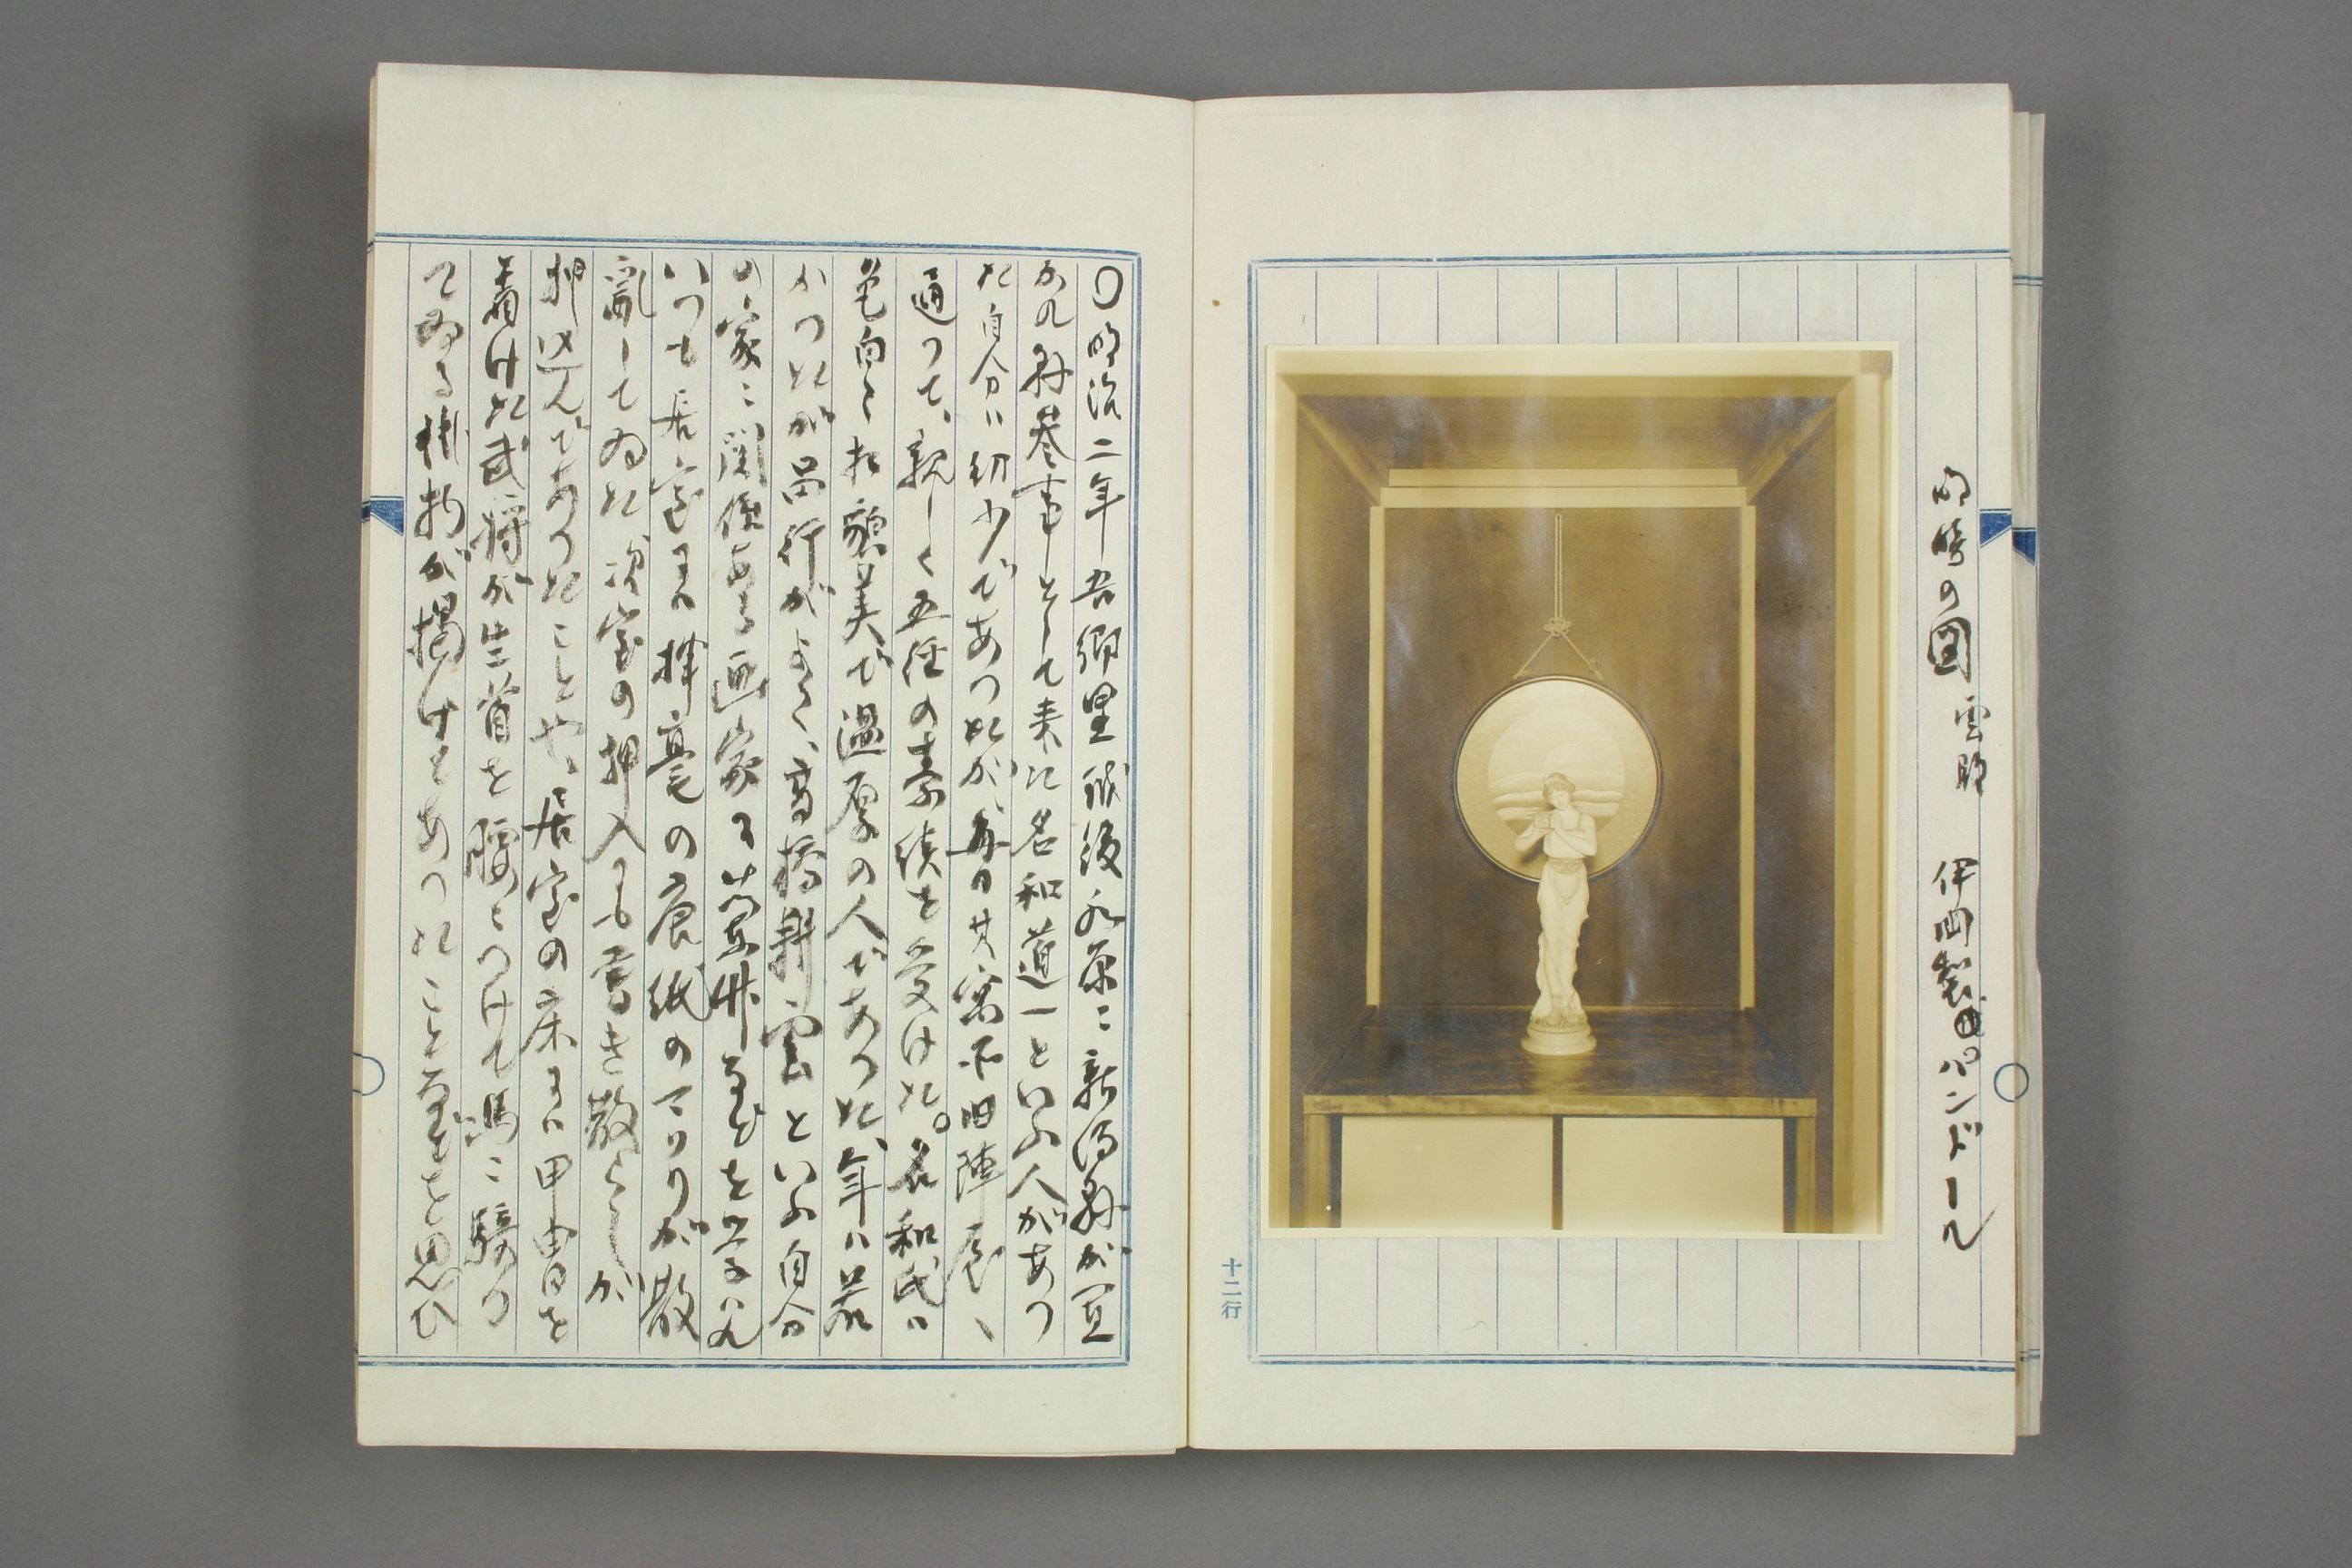 の圖 雲 伊 製 パンドール
十二行
〇明治二年吾郷里越後水原に新潟縣が置
かれ縣参事として来た名和道一といふ人があつ
た自分は幼少であつたが、毎日其寓所旧陣屋へ
通つて、親しく五経の素読を受けた。名和氏は
色白く相貌美で温厚の人であつた、年は若
かつたが品行がよく、高橋翔雲といふ自分
の家に関係ある画家に蘭竹などを学ばれ
いつも居室には揮毫の唐紙のマクリが散
亂してゐた次室の押入にも書き散らしが
押込んであつたことや、居室の床には甲冑を
着けた武将が生首を腰につけて馬に騎つ
てゐる掛物が掲けてあつたことなどを思ひ